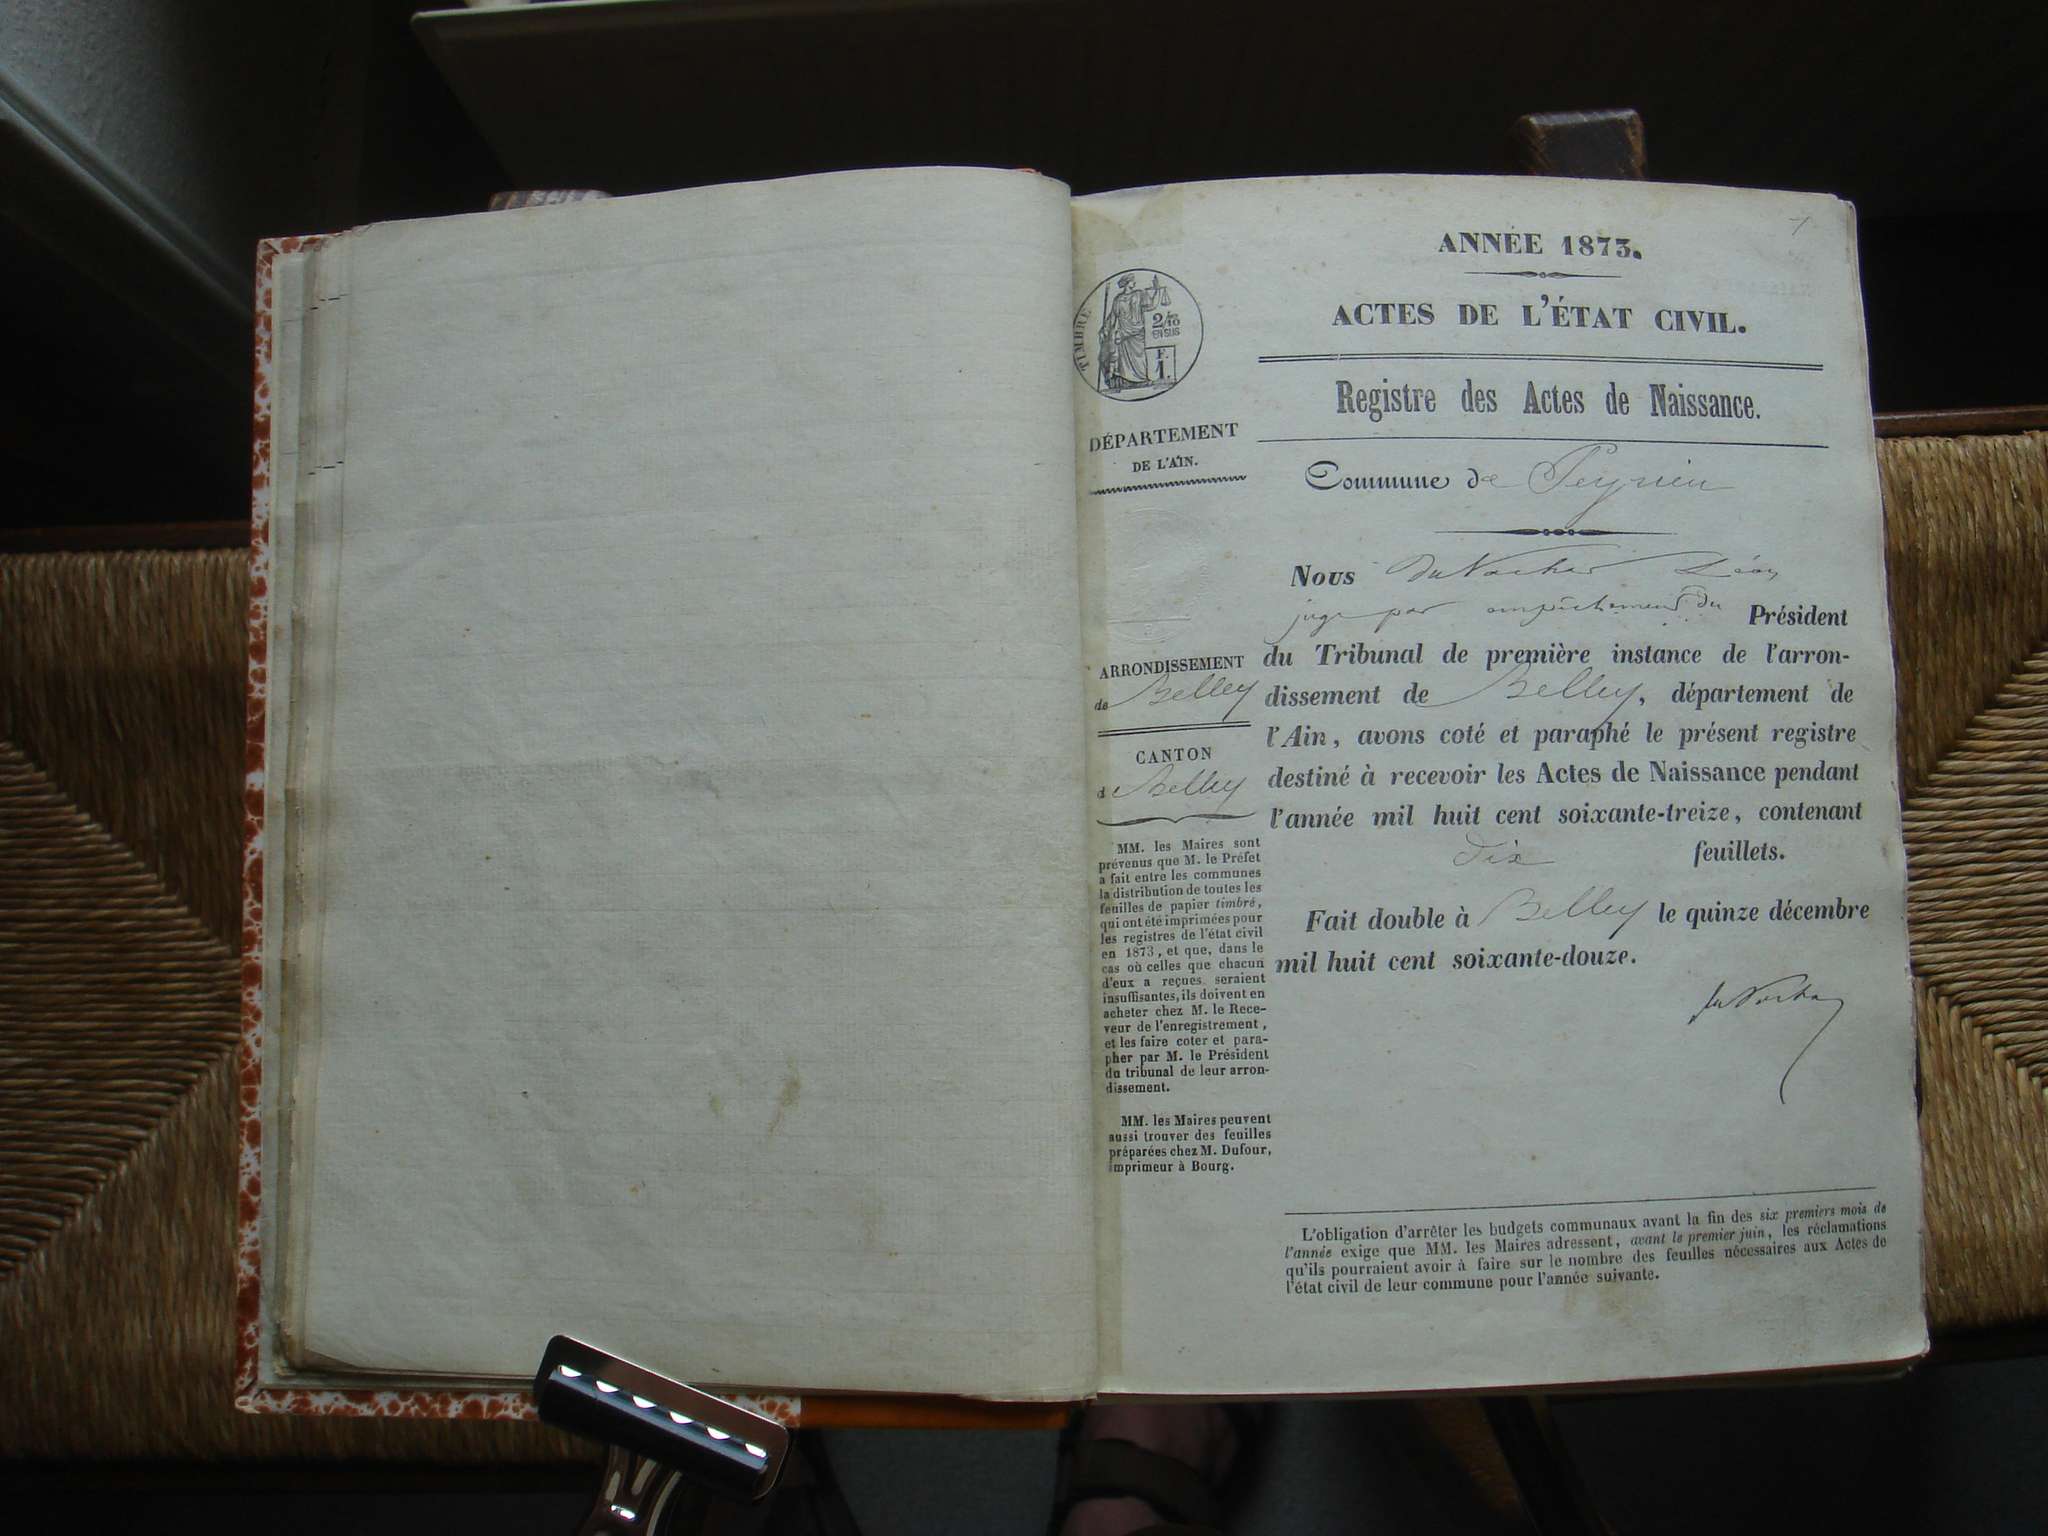 ANNÉE 1873.
ACTES DE L'ÉTAT CIVIL.
Registre des Actes de Naissance.
Commune de Peyrieu
Nous Léon
juge par empêchement du Président
du Tribunal de première instance de l'arron-
dissement de Belley, département de
l'Ain, avons coté et paraphé le présent registre
destiné à recevoir les Actes de Naissance pendant
l'année mil huit cent soixante-treize, contenant
dix feuillets.
Fait double à Belley le quinze décembre
mil huit cent soixante-douze.
TIMBRE
2/10
EN SUS
F.
1.
DÉPARTEMENT
DE L'AIN.
ARRONDISSEMENT
de Belley
CANTON
d Belley
MM. les Maires sont
prévenus que M. le Préfet
a fait entre les communes
la distribution de toutes les
feuilles de papier timbré,
qui ont été imprimées pour
les registres de l'état civil
en 1873, et que, dans le
cas où celles que chacun
d'eux a reçues seraient
insuffisantes, ils doivent en
acheter chez M. le Rece-
veur de l'enregistrement,
et les faire coter et para-
pher par M. le Président
du tribunal de leur arron-
dissement.
MM. les Maires peuvent
aussi trouver des feuilles
préparées chez M. Dufour,
imprimeur à Bourg.
L'obligation d'arrêter les budgets communaux avant la fin des six premiers mois de
l'année exige que MM. les Maires adressent, avant le premier juin, les réclamations
qu'ils pourraient avoir à faire sur le nombre des feuilles nécessaires aux Actes de
l'état civil de leur commune pour l'année suivante.